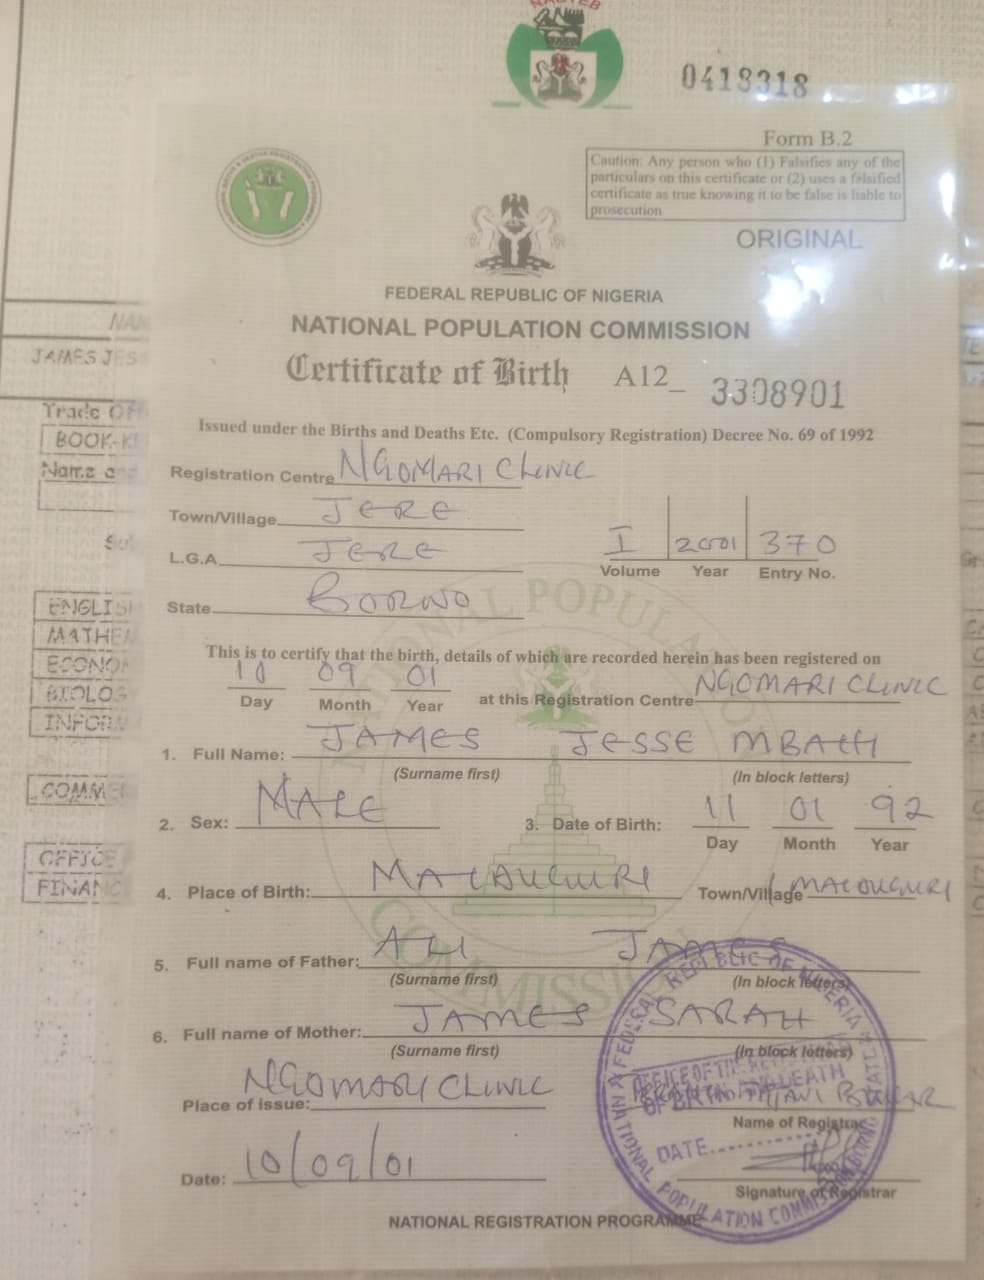 NABTEB
0418318
Form B.2
Caution: Any person who (1) Falsifies any of the
particulars on this certificate or (2) uses a falsified
certificate as true knowing it to be false is liable to
prosecution
ORIGINAL
FEDERAL REPUBLIC OF NIGERIA
NATIONAL POPULATION COMMISSION
Certificate of Birth A12_ 3308901
JAMES JES
Trade Of
BOOK-K
Issued under the Births and Deaths Etc. (Compulsory Registration) Decree No. 69 of 1992
Registration Centre NGOMARI CLINIC
Town/Village JERE
L.G.A. JERE
I 2001 370
Volume Year Entry No.
State BORNO
ENGLIS
MATHEM
ECONOM
BIOLOG
INFORM
COMME
OFFICE
FINANC
This is to certify that the birth, details of which are recorded herein has been registered on
10 09 01 at this Registration Centre NGOMARI CLINIC
Day Month Year
1. Full Name: JAMES JESSE MBAYI
(Surname first) (In block letters)
2. Sex: MALE 3. Date of Birth: 11 01 92
Day Month Year
4. Place of Birth: MAIDUGURI Town/Village MAIDUGURI
5. Full name of Father: ALI JAMES
(Surname first) (In block letters)
6. Full name of Mother: JAMES SARAH
(Surname first) (In block letters)
Place of issue: NGOMARI CLINIC
Name of Registrar
Date: 10/09/01
Signature of Registrar
NATIONAL REGISTRATION PROGRAMME
NATIONAL POPULATION COMMISSION
FEDERAL REPUBLIC OF NIGERIA
OFFICE OF THE REGISTRAR
OF BIRTH AND DEATH
DATE
NATIONAL POPULATION COMMISSION BORNO STATE